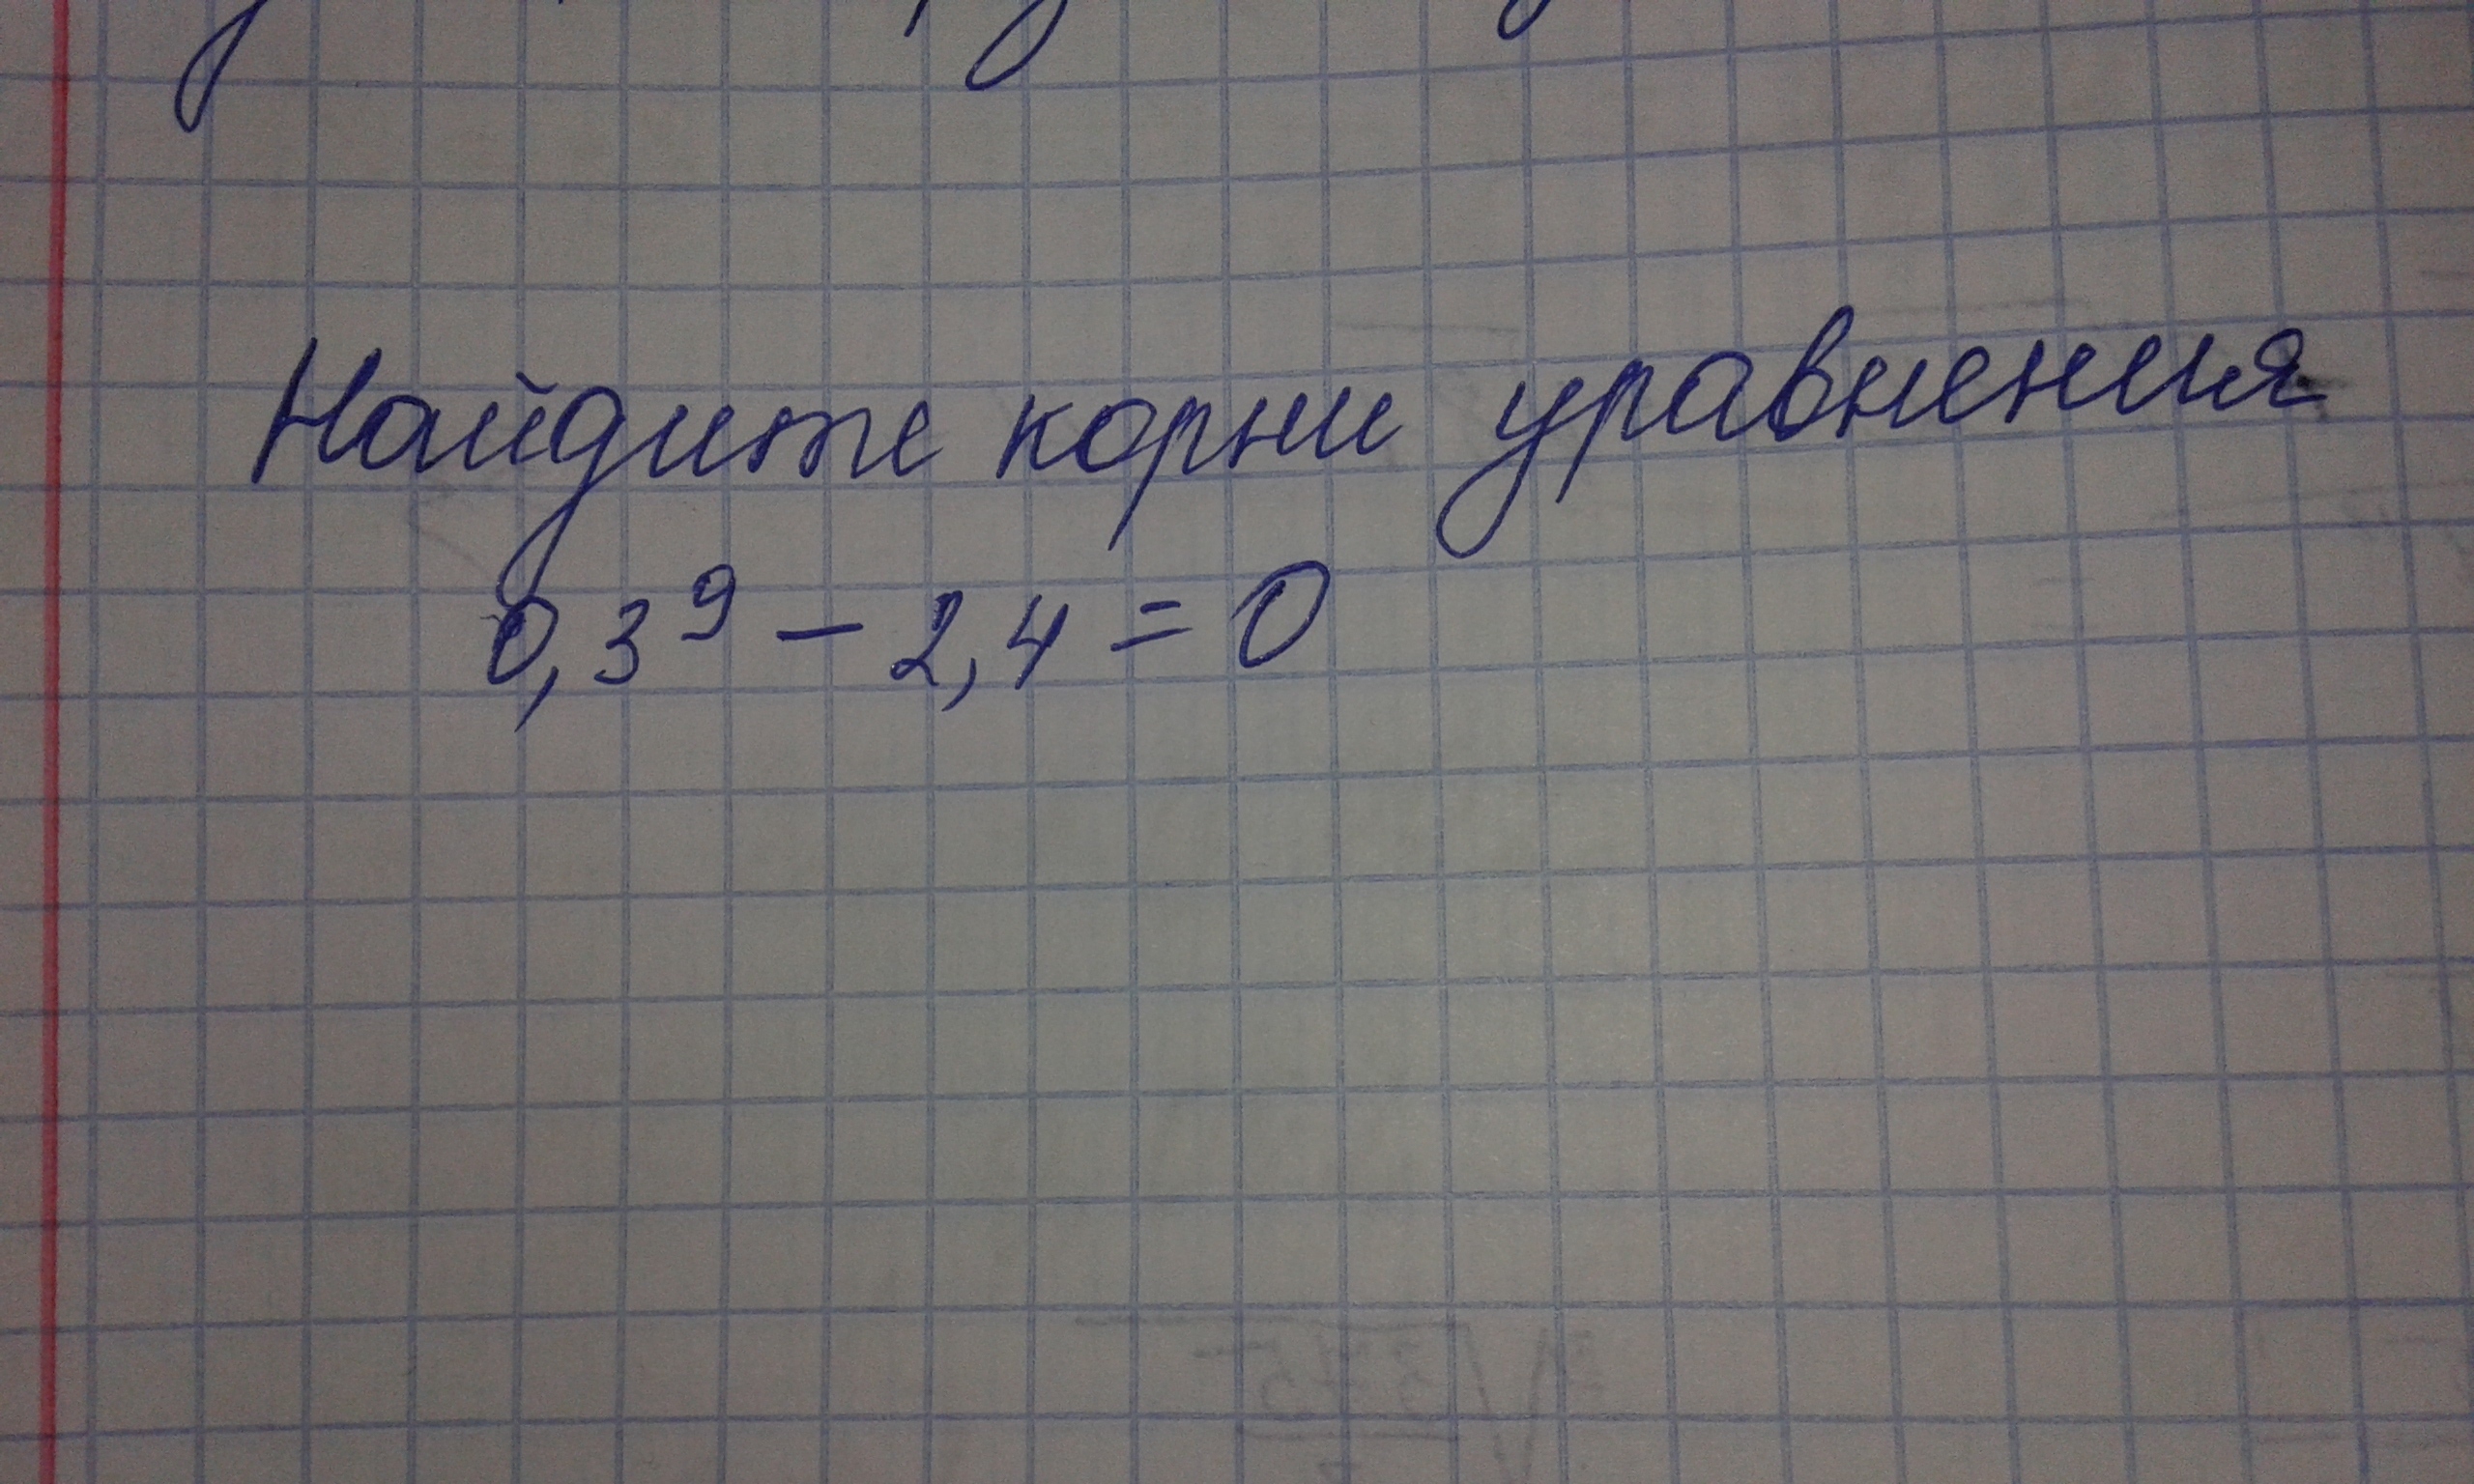 Найдите корни уравнения
0,3⁹ – 2,4 = 0